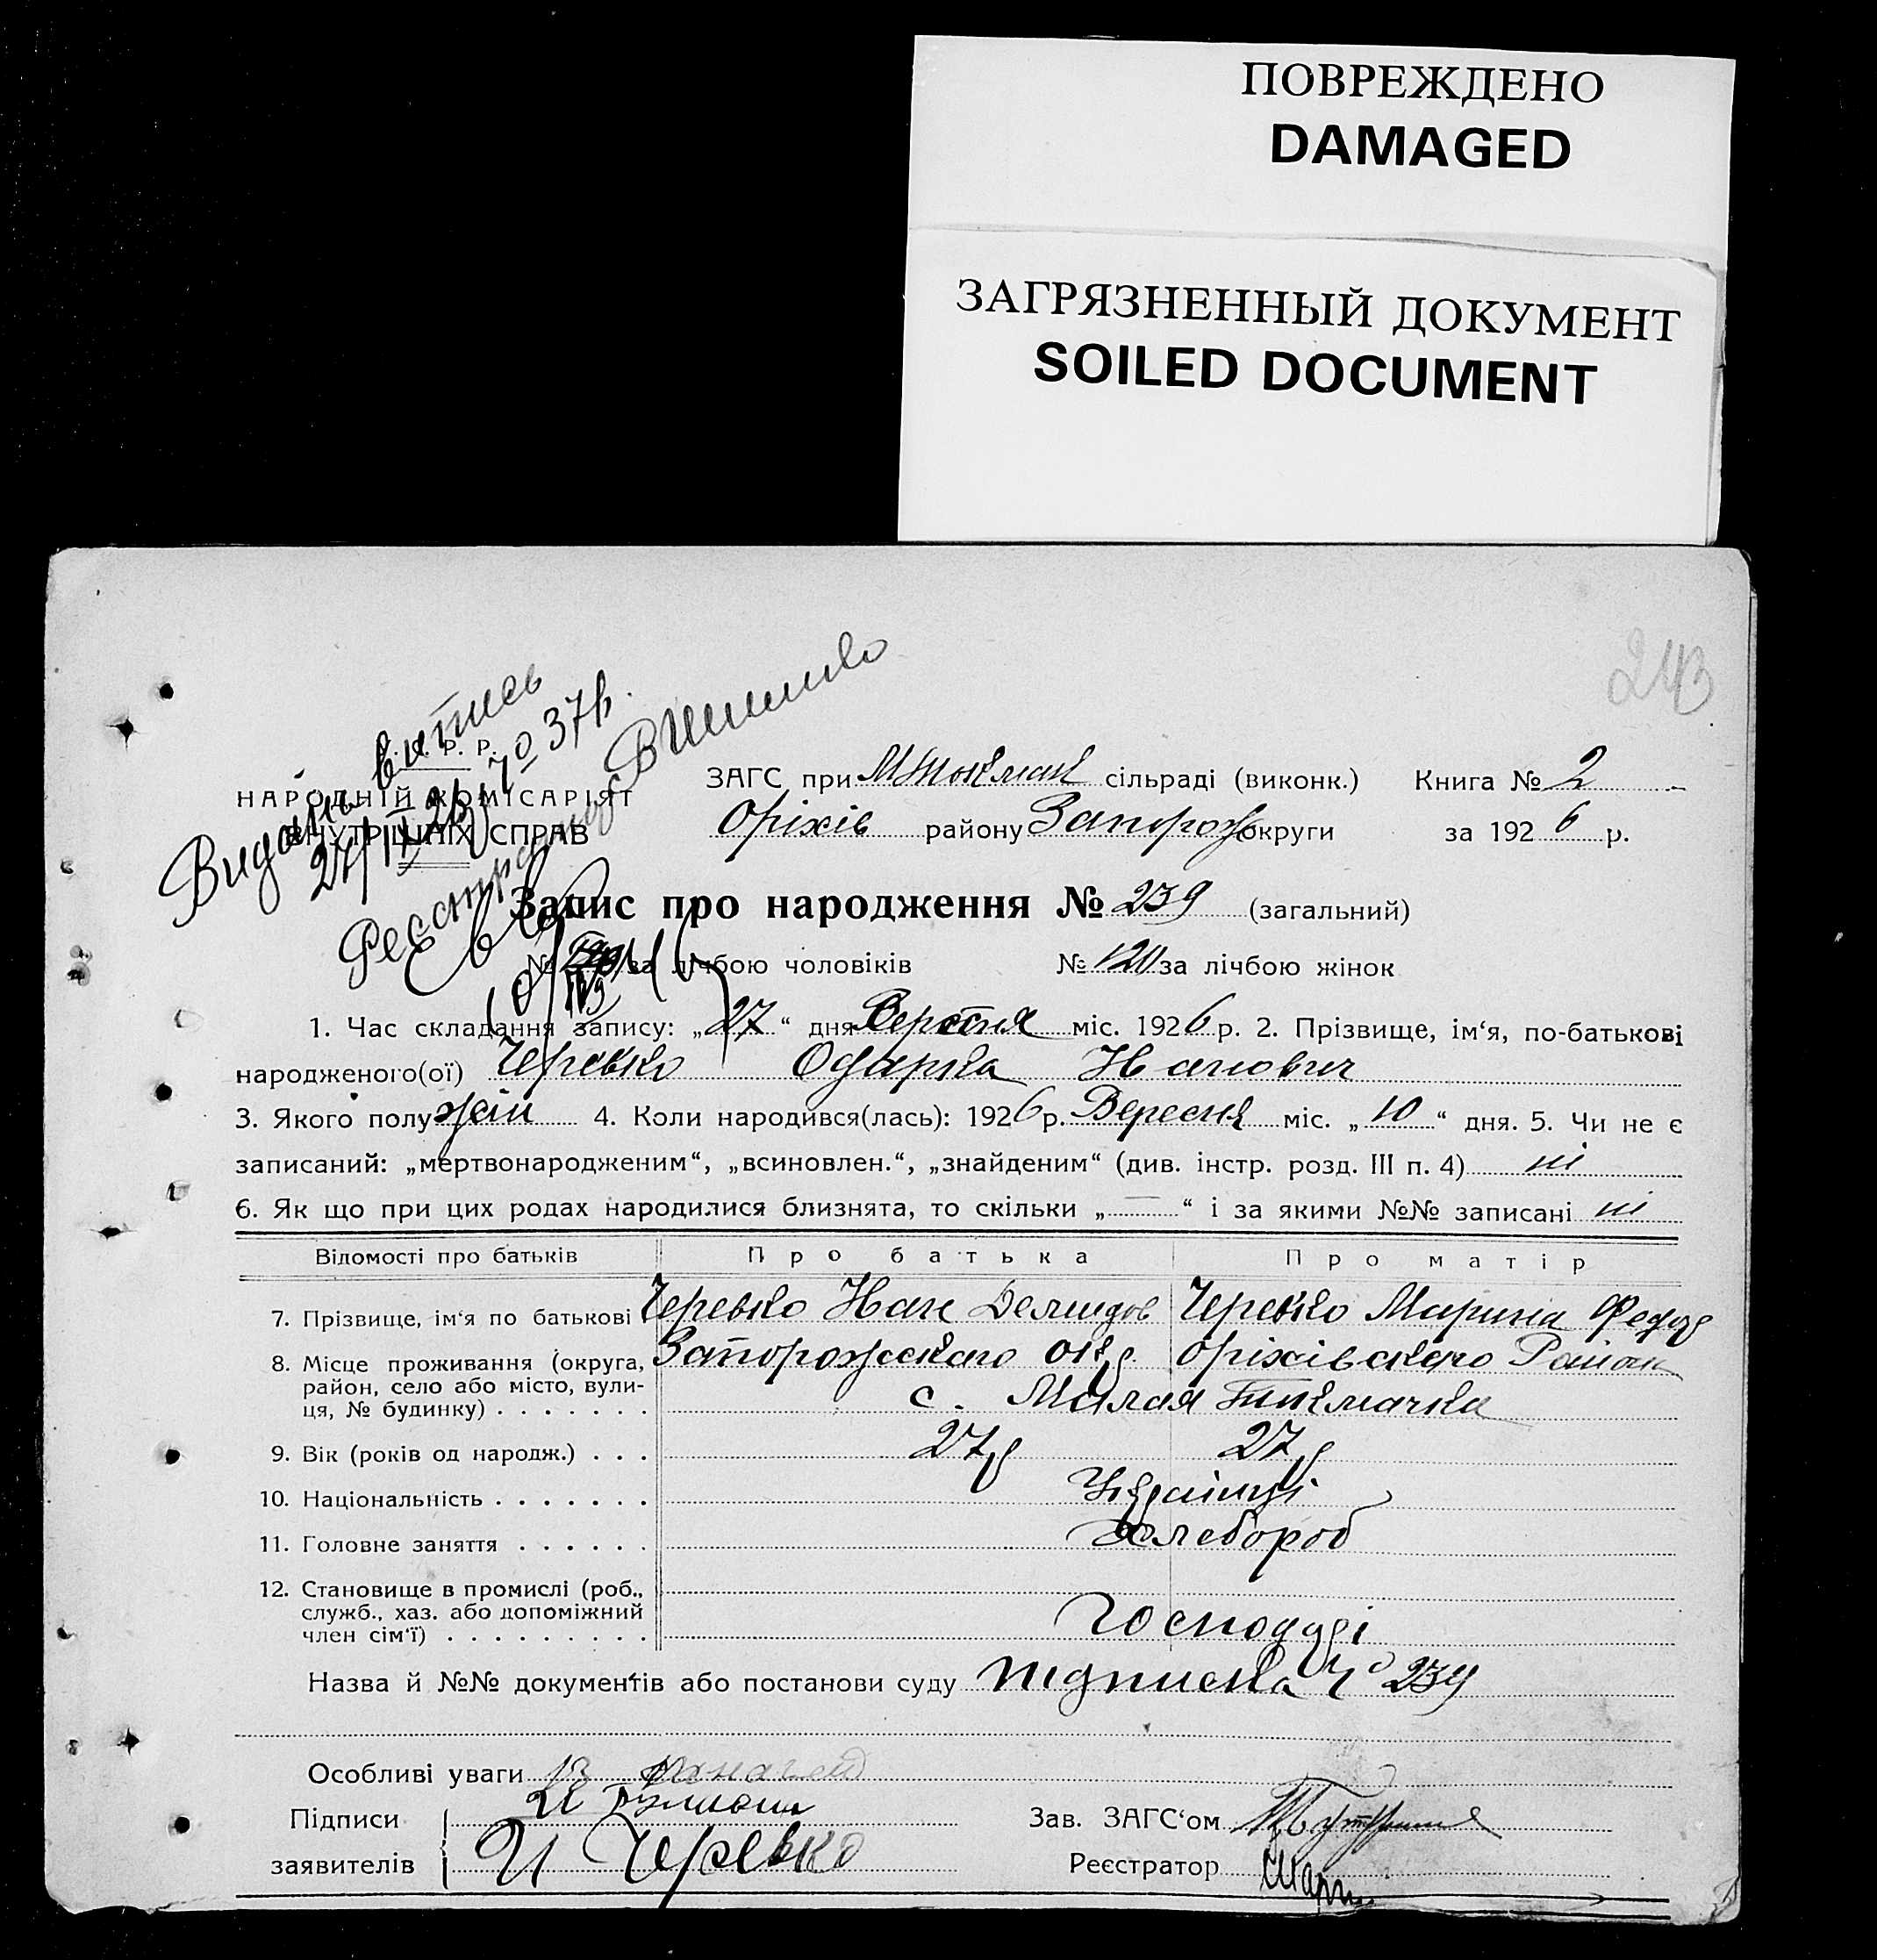 ПОВРЕЖДЕНО
DAMAGED
ЗАГРЯЗНЕННЫЙ ДОКУМЕНТ
SOILED DOCUMENT
243
Видань витись
37р.
Р. Р.
НАРОДНІЙ КОМІСАРІЯТ
ВНУТРІШНІХ СПРАВ
ЗАГС при МТокмач сільраді (виконк.) Книга № 2
Оріхів району Запорож округи за 1926 р.
Запис про народження № 239 (загальний)
№ за лічбою чоловіків № 120 за лічбою жінок
1. Час складання запису: „27“ дня Вересня міс. 1926 р. 2. Прізвище, ім‘я, по-батькові
народженого(ої) Черевко Одарка Иванович
3. Якого полу жін 4. Коли народився(лась): 1926 р. Вересня міс. „10“ дня. 5. Чи не є
записаний: „мертвонародженим“, „всиновлен.“, „знайденим“ (див. інстр. розд. III п. 4) ні
6. Як що при цих родах народилися близнята, то скільки „—“ і за якими №№ записані ні
Відомості про батьків Про батька Про матір
7. Прізвище, ім‘я по батькові Черевко Иван Демидов Черевко Марина Федор
8. Місце проживання (округа, Запорожського окр. Оріхівского Району
район, село або місто, вули-
ця, № будинку) . . . . . . . с. Малая Токмачка
9. Вік (років од народж.) . . . 27р 27р
10. Національність . . . . . . . Українці
11. Головне заняття . . . . . . Хлебороб
12. Становище в промислі (роб.,
служб., хаз. або допоміжний
член сім‘ї) . . . . . . . . . Господарі
Назва й №№ документів або постанови суду підписка № 239
Особливі уваги
Підписи
заявителів И Черевко
Зав. ЗАГС‘ом
Реєстратор